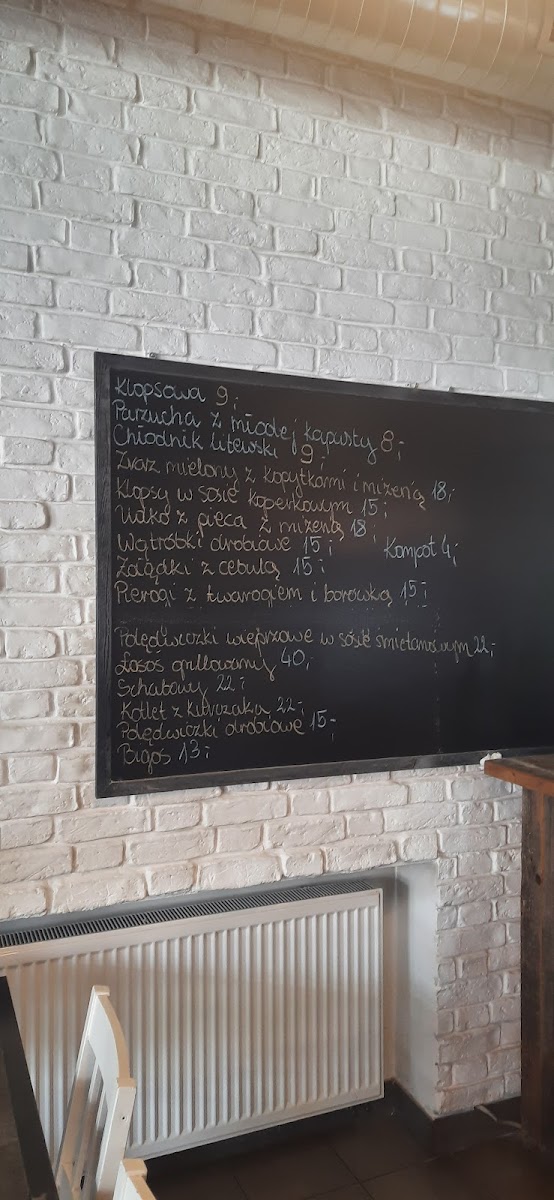 Klopsowa 9,-
Parzucha z młodej kapusty 8,-
Chłodnik litewski 9,-
Zraz mielony z kopytkami i mizerią 18,-
Klopsy w sosie koperkowym 15,-
Udko z pieca z mizerią 18,-
Wątróbki drobiowe 15,-
Kompot 4,-
Żołądki z cebulą 15,-
Pierogi z twarogiem i borówką 15,-
Polędwiczki wieprzowe w sosie śmietanowym 22,-
Łosoś grillowany 40,-
Schabowy 22,-
Kotlet z kurczaka 22,-
Polędwiczki drobiowe 15,-
Bigos 13,-